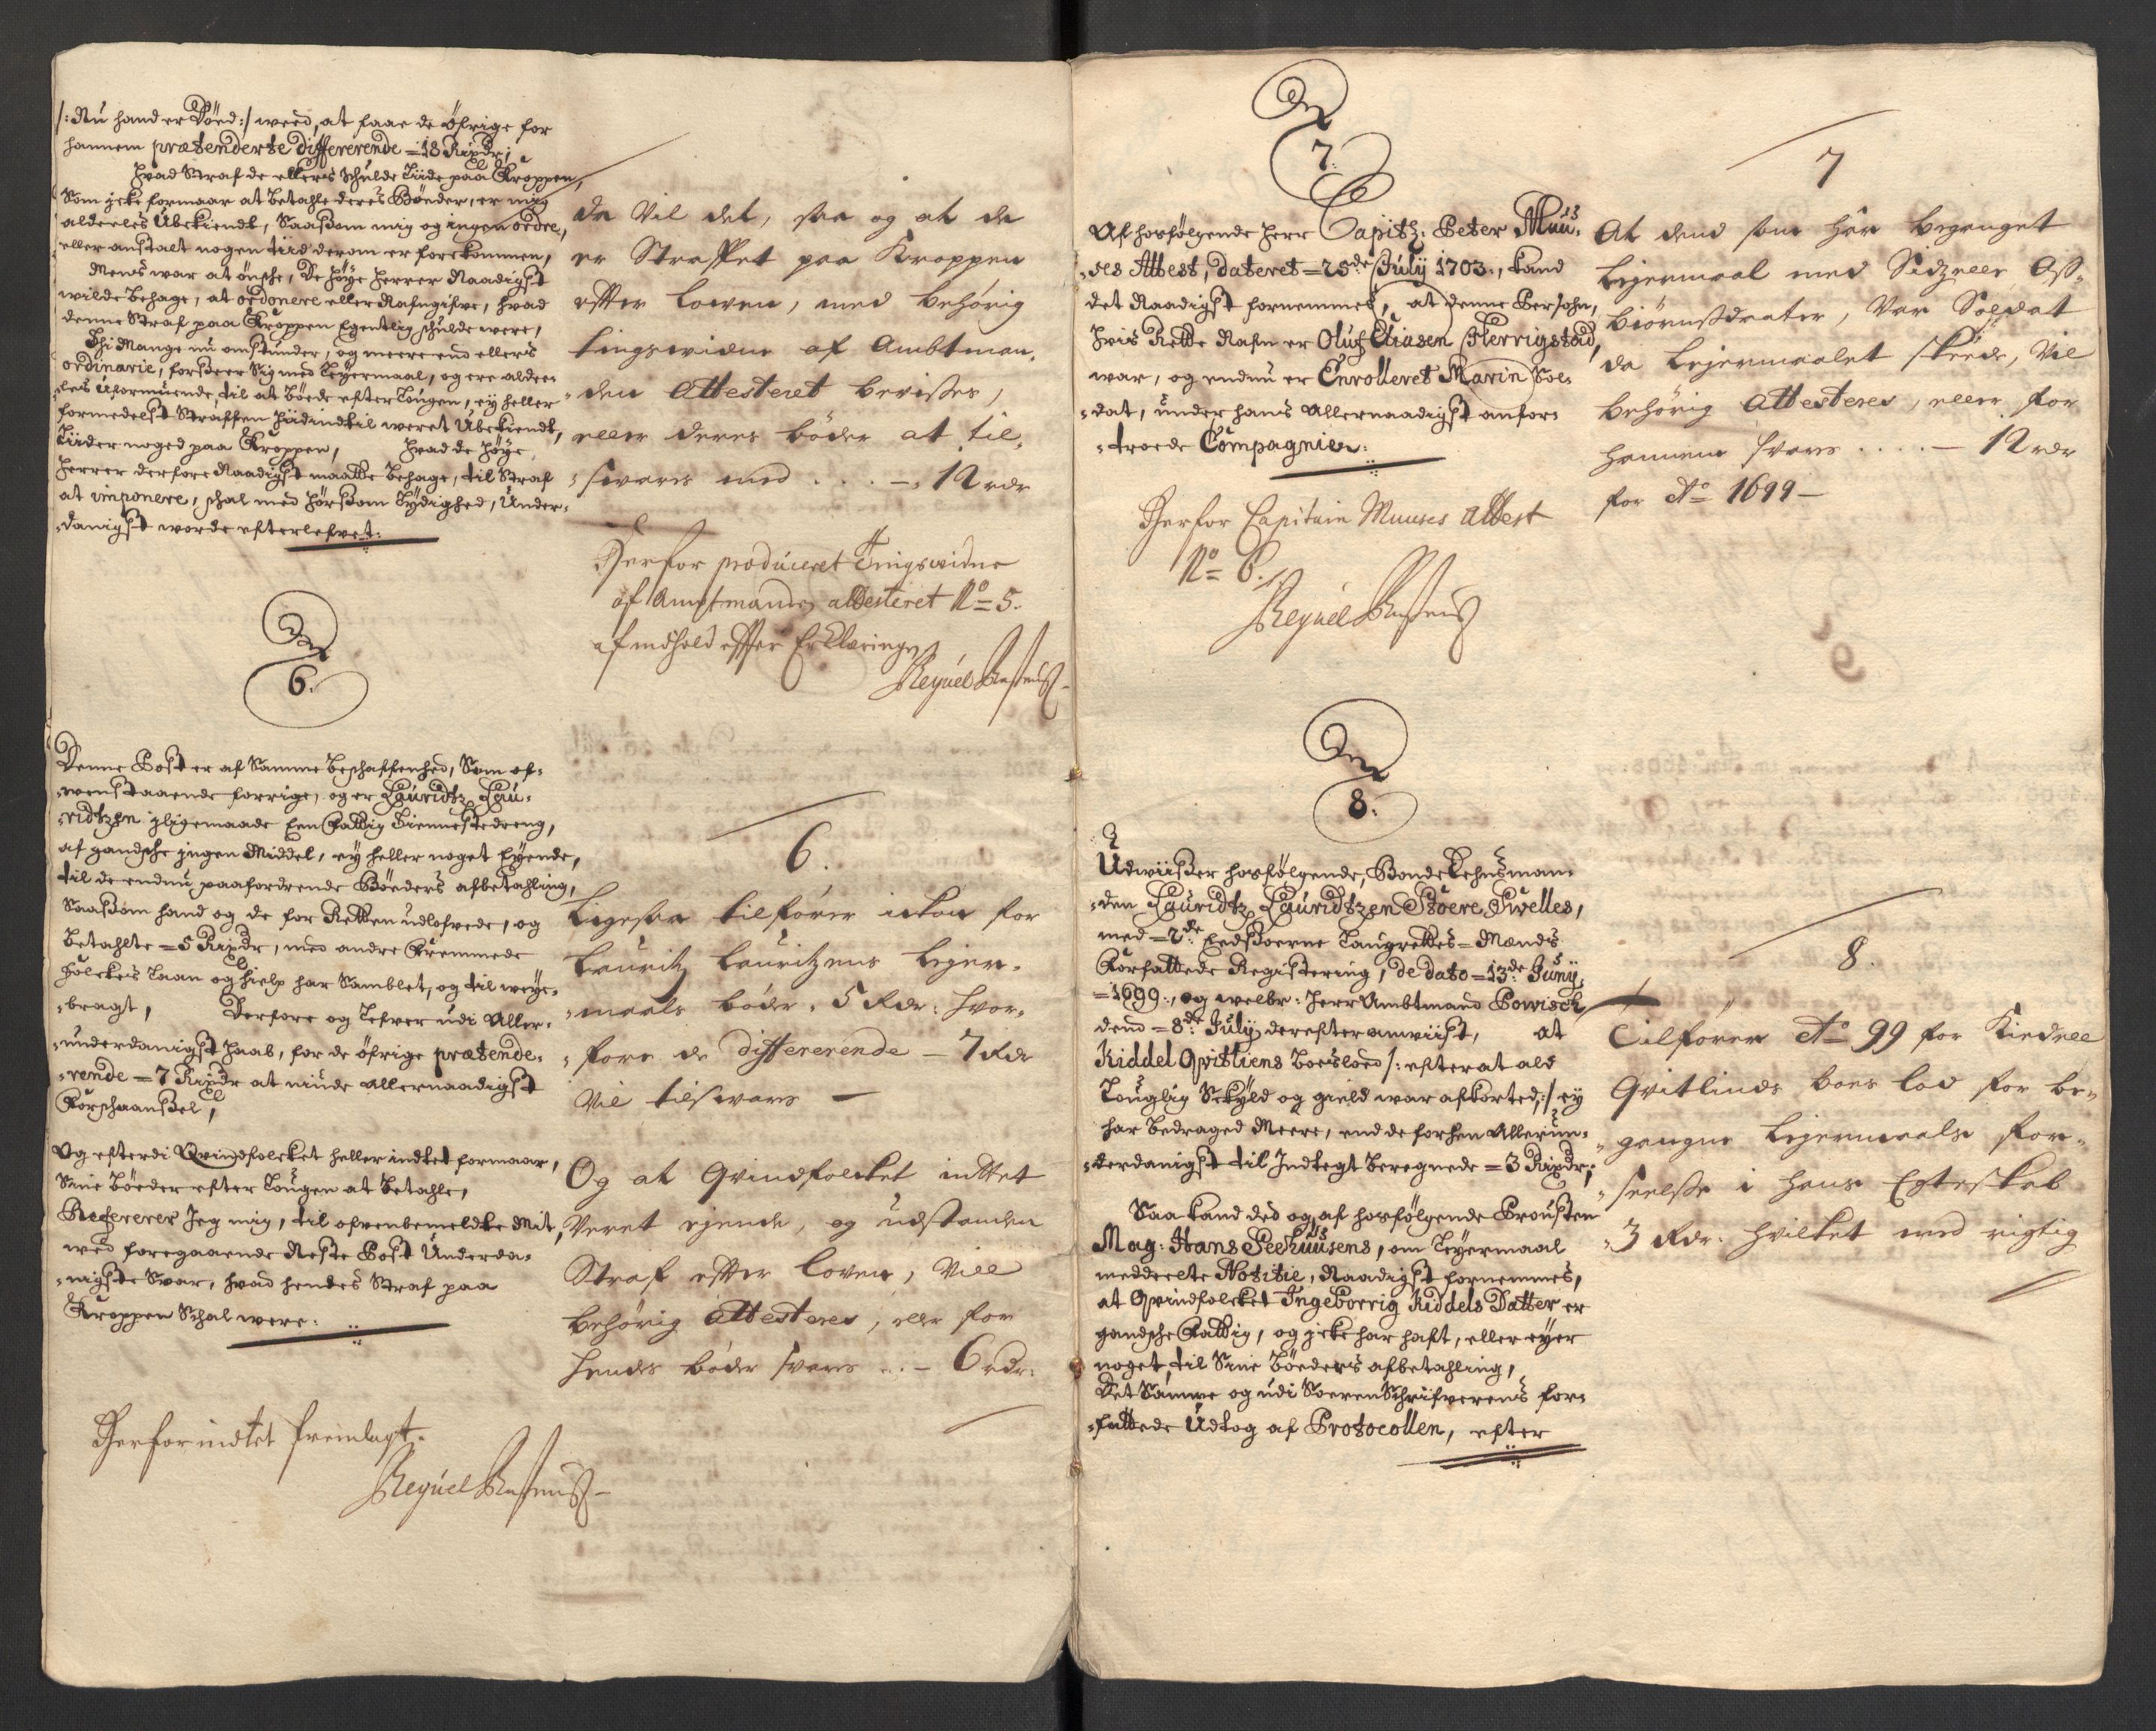 /: Nu hand er Död :/ weed, at faae de öfrige for
hannem prætenderte differerende = 18 Rixdr;
Hvad Straf de ellers schulde Liide paa Kroppen,
Som icke formaar at betahle deres Bøeder, er mig
alderles Ubekiendt, Saasom mig og ingen ordre,
eller anstalt nogen tiid derom er forekommen,
Mens war at ønsche, De Høye Herrer Naadigst
wilde behage, at ordonere eller Nafngifve, hvad
denne Straf paa Kroppen Egentlig schulde were,
Thi Mange nu omstunder, og meere end ellers
ordinarie, forseer Sig med Leyermaal, og ere alder-
-les Uformuende, til at Bøede efter Lougen, ey heller
formedelst Straffen hiidindtil weret Ubekiendt,
Liider noged paa Kroppen, Hvad de Høye
Herrer derfore Naadigst maatte behage, til Straf
at imponere, schal med hørsom Lydighed, Under-
-danigst worde efterlefvet.
No
6.
Denne Post er af Samme beschaffenhed, Som of-
-wenstaaende forrige, og er Lauridtz Lau-
-ridtzen iligemaade Een Fattig Tiennestedreng,
af gandsche ingen Middel, ey heller noget Eyende,
til de endnu paafordrende Bøeders afbetahling,
Saasom hand og de for Retten udlofvede, og
betahlte = 5 Rixdr, med andre Fremmede
Folckes Laan og hielp har Samblet, og til weye-
-bragt, Derfore og Lefver udi Aller-
-underdanigst Haab, for de øfrige prætende-
-rende = 7 Rixdr at niude allernaadigst
Forschaanssel,
Og efterdi Qvindfolcket heller indtet formaar,
Sine Bøeder efter Lougen at betahle,
Refererer Jeg mig, til ofvenbemeldte Mit,
wed foregaaende Neste Post Underda-
-nigste Svar, hvad hendes Straf paa
Kroppen Schal were.
Herfor indtet fremlagt.
da Vil det, saa og at de
er Straffet paa Kroppen
effter Loven, med behörig
tingsvidne af Ambtman-
-den Attesteret bevises,
eller deres böder at til-
-svares med . . . - 12 rdr
Herfor produceret Tingsvidne
af Amptmanden attesteret No 5.
af indhold effter Erklæringen
6.
Ligesaa tilförer ickon for
Lauritz Lauritzens Lejer-
-maals böder. 5 Rdr: hvor-
-fore de differerende - 7 Rdr
Vil tilsvares -
Og at Qvindfolcket indtet
Veret ejende, og udstanden
Straf effter Loven, Vill
behörig Attesteres, eller for
hendes böder svares . . - 6 rdr.
No
7.
Af hosfølgende Herr Capitz: Peter Muu-
-ses Attest, dateret = 25de July 1703., kand
det Naadigst fornemmes, at denne Persohn,
hvis Rette Nafn er Oluf Eliasen Herrigstad,
war, og endnu er Enrolleret Marin Sol-
-dat, under hans Allernaadigst anfor-
-troede Compagnier.
Herfor Capitain Muuses Attest
No 6.
No
8.
Udwiisser hosfølgende, Bonde Lehnsman-
-den Lauridtz Lauridtzen Stoere Swelles,
med = 2de Eedsoerne Laugrettes = Mænds
Forfattede Registering, de dato = 13de Juny
= 1699., og welbr: Herr Ambtmand Powisch
dend = 8de July derefter anwiist, at
Kiddel Qvitliens boesloed /: efter at ald
Louglig Schyld og gield war afkorted, :/ ey
har bedraged Meere, end de forhen Allerun-
-derdanigst til Indtegt beregnede = 3 Rixdr;
Saa kand ded og af hosfølgende Prousten
Mag: Hans Seehuusens, om Leyermaal
meddeelte Notitie, Naadigst fornemmes,
at Qvindfolcket Ingeborrig Kiddels Datter er
gandsche Fattig, og icke har haft, eller eyer
noget til Sine Bøeders afbetahling,
Det Samme og udi Soeren Schrifverens for-
-fattede Udtog af Protocollen, efter
7
At dend som har begaaget
Lejermaal med Sidzelle Oss-
biörnssdaater, Var Soldat
da Lejermaalet skeede, Vil
behörig Attesteres, eller for
hannem svares . . . . - 12 rdr
for Ao 1699 -
8.
Tilförer Ao 99 for Kiedell
Qvitlinds boes lod for be-
-gangne Lejermaals for-
-seelsse i hans Egteskab
-3 Rdr. hvilket med rigtig